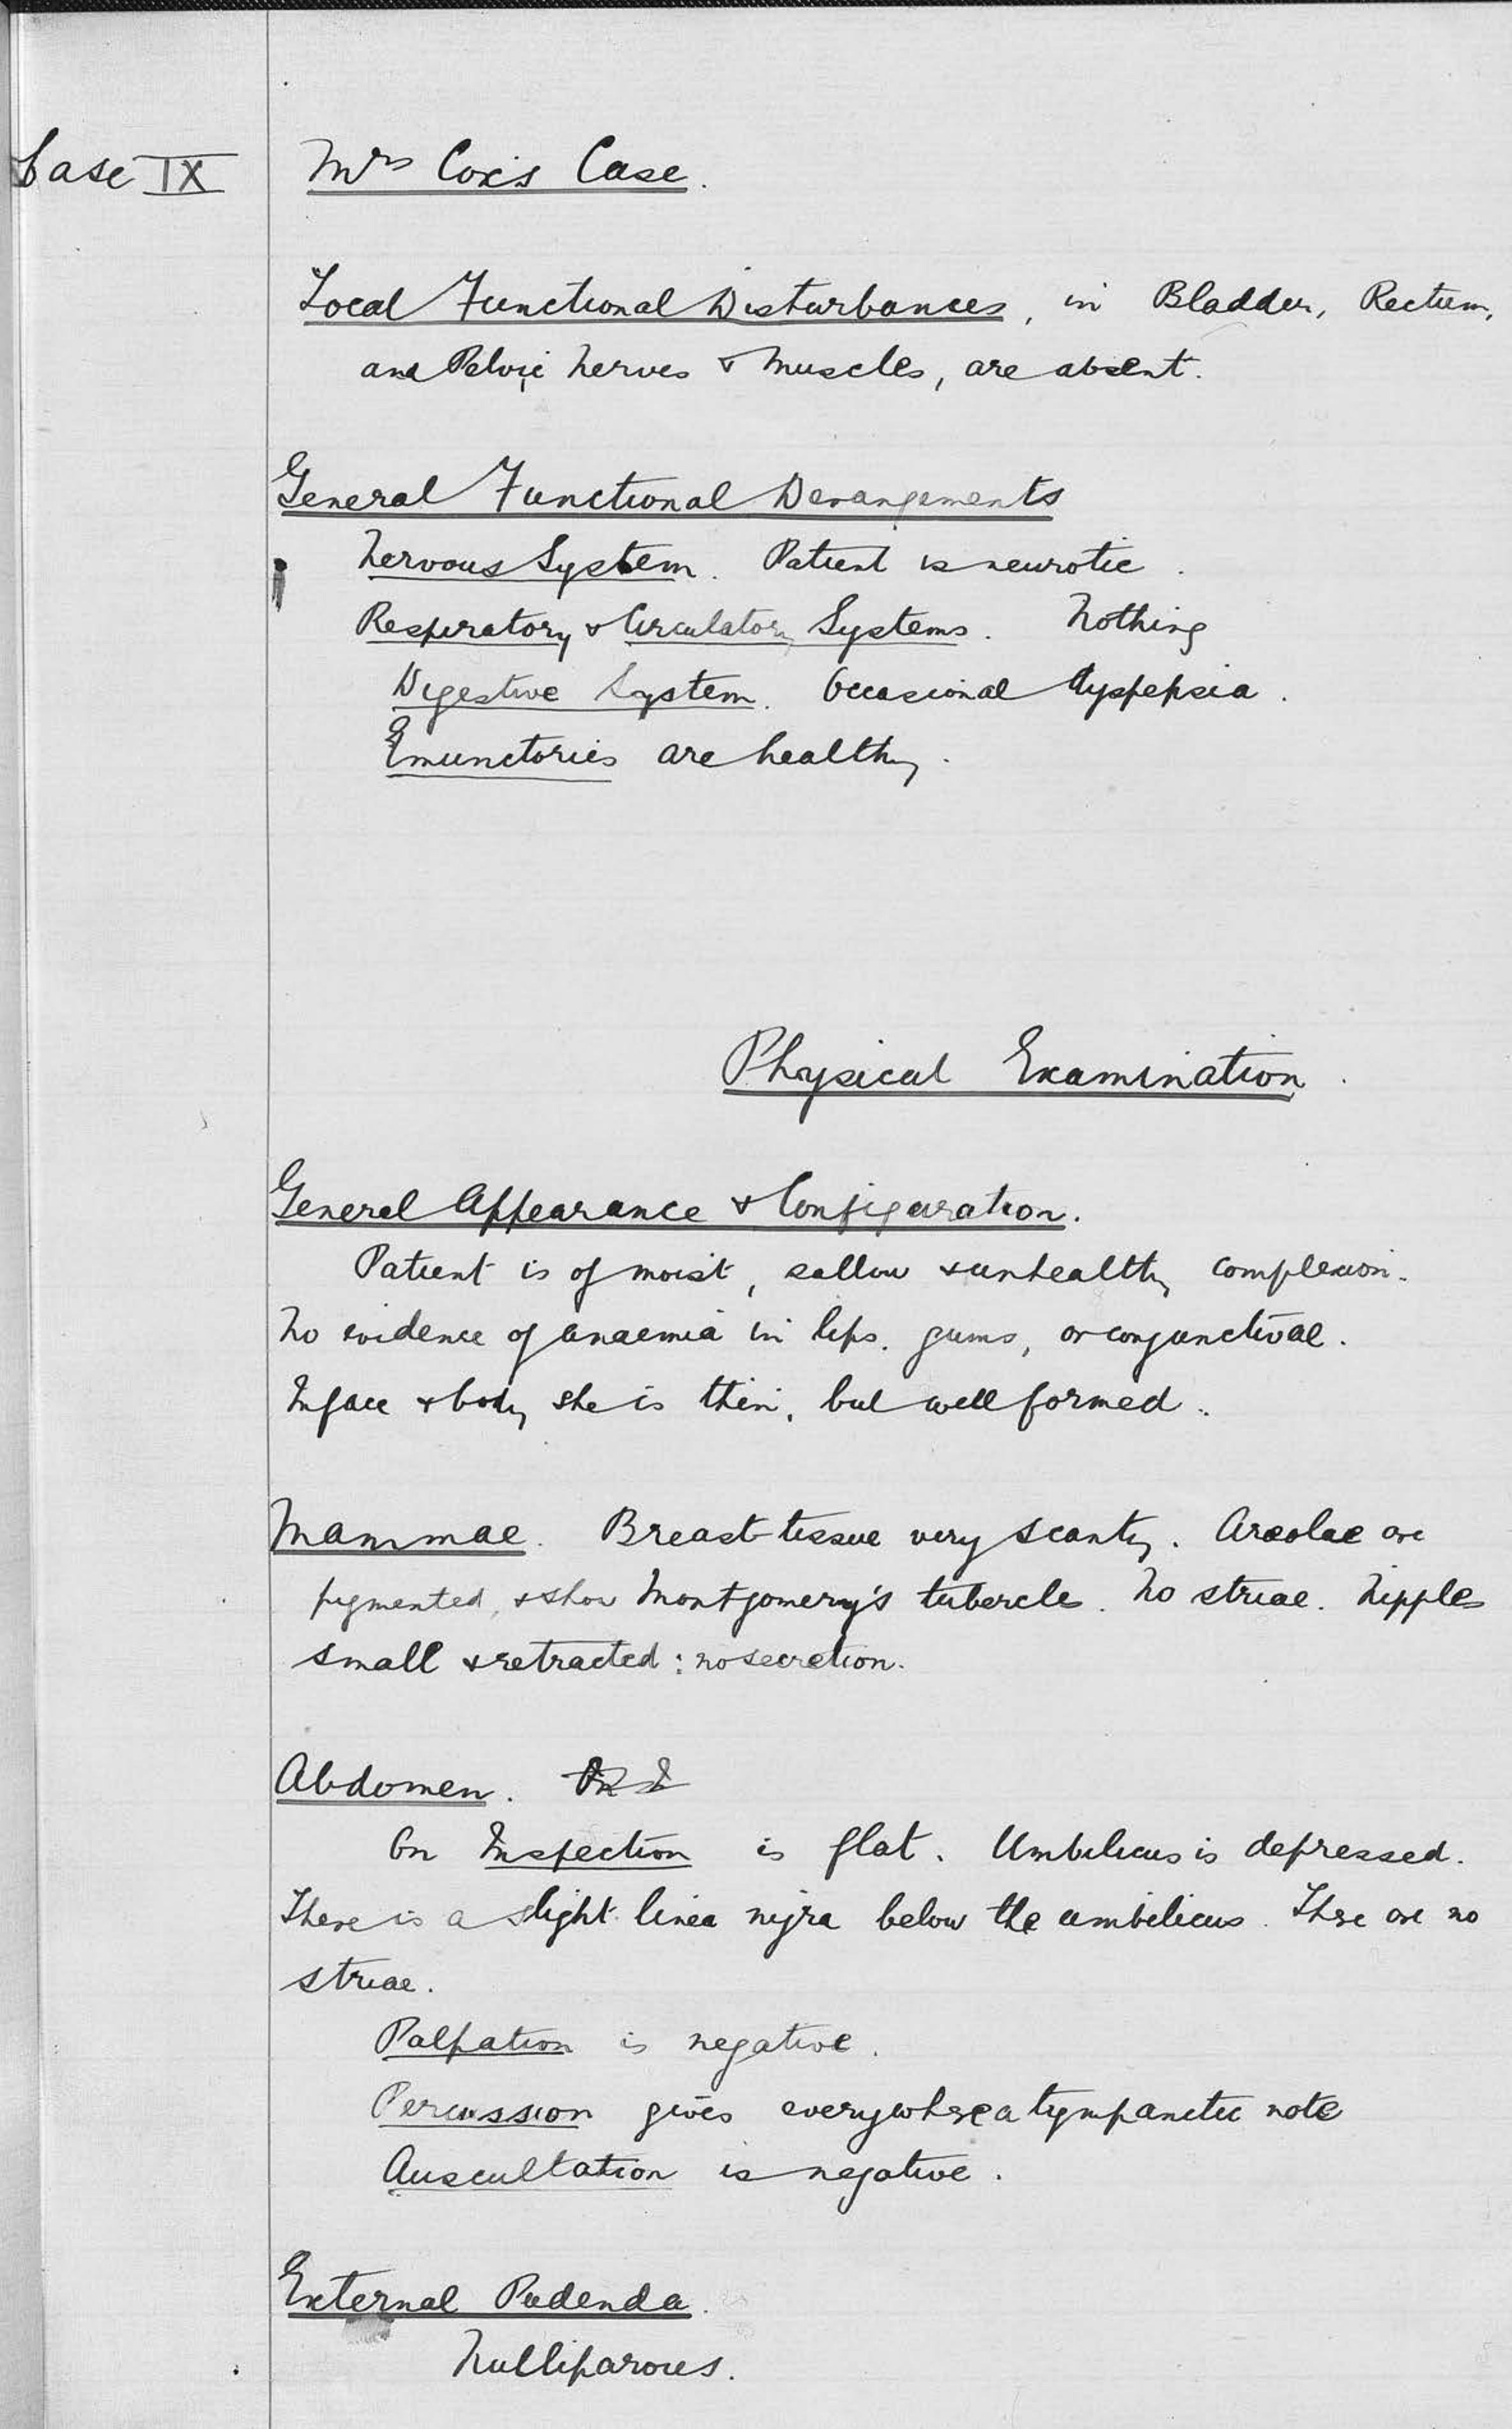 Case IX
Mrs Cox's Case.
Local Functional Disturbances, in Bladder, Rectum,
and Pelvic nerves & muscles, are absent.
General Functional Derangements
Nervous System. Patient is neurotic.
Respiratory & Circulatory Systems. Nothing
Digestive System. Occasional dyspepsia.
Emunctories are healthy.
Physical Examination.
General Appearance & Configuration.
Patient is of moist, sallow & unhealthy complexion.
No evidence of anaemia in lips, gums, or conjunctivae.
In face & body she is thin, but well formed.
Mammae. Breast-tissue very scanty. Areolae are
pigmented, & show Montgomery's tubercles. No striae. Nipples
small & retracted: no secretion.
Abdomen.
On Inspection is flat. Umbilicus is depressed.
There is a slight linea nigra below the umbilicus. There are no
striae.
Palpation is negative.
Percussion gives everywhere a tympanetic note
Auscultation is negative.
External Pudenda.
Nulliparous.